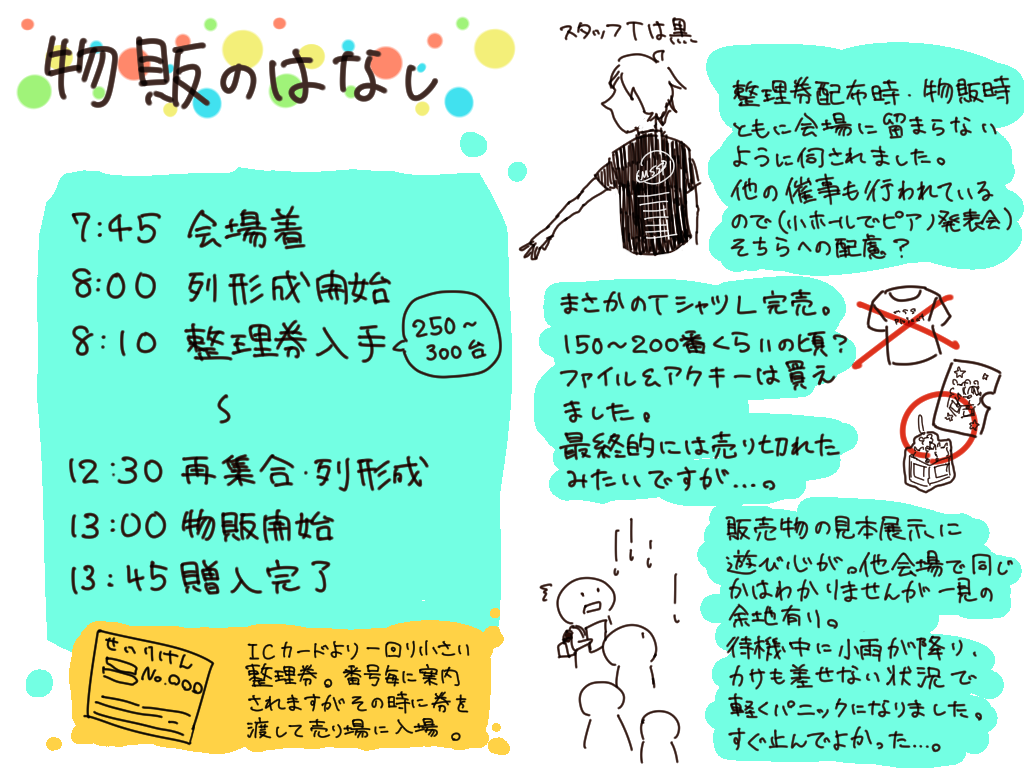 物販のはなし
7:45 会場着
8:00 列形成開始
8:10 整理券入手
250～
300台
～
12:30 再集合・列形成
13:00 物販開始
13:45 贈入完了
せいりけん
No.000
ICカードより一回り小さい
整理券。番号毎に案内
されますがその時に券を
渡して売り場に入場。
スタッフTは黒
整理券配布時・物販時
ともに会場に留まらない
ように伺されました。
他の催事も行われている
ので(小ホールでピアノ発表会)
そちらへの配慮?
まさかのTシャツL完売。
150～200番くらいの頃?
ファイル&アクキーは買え
ました。
最終的には売り切れた
みたいですが…。
販売物の見本展示に
遊び心が。他会場で同じ
かはわかりませんが一見の
余地有り。
待機中に小雨が降り、
カサも差せない状況で
軽くパニックになりました。
すぐ止んでよかった…。